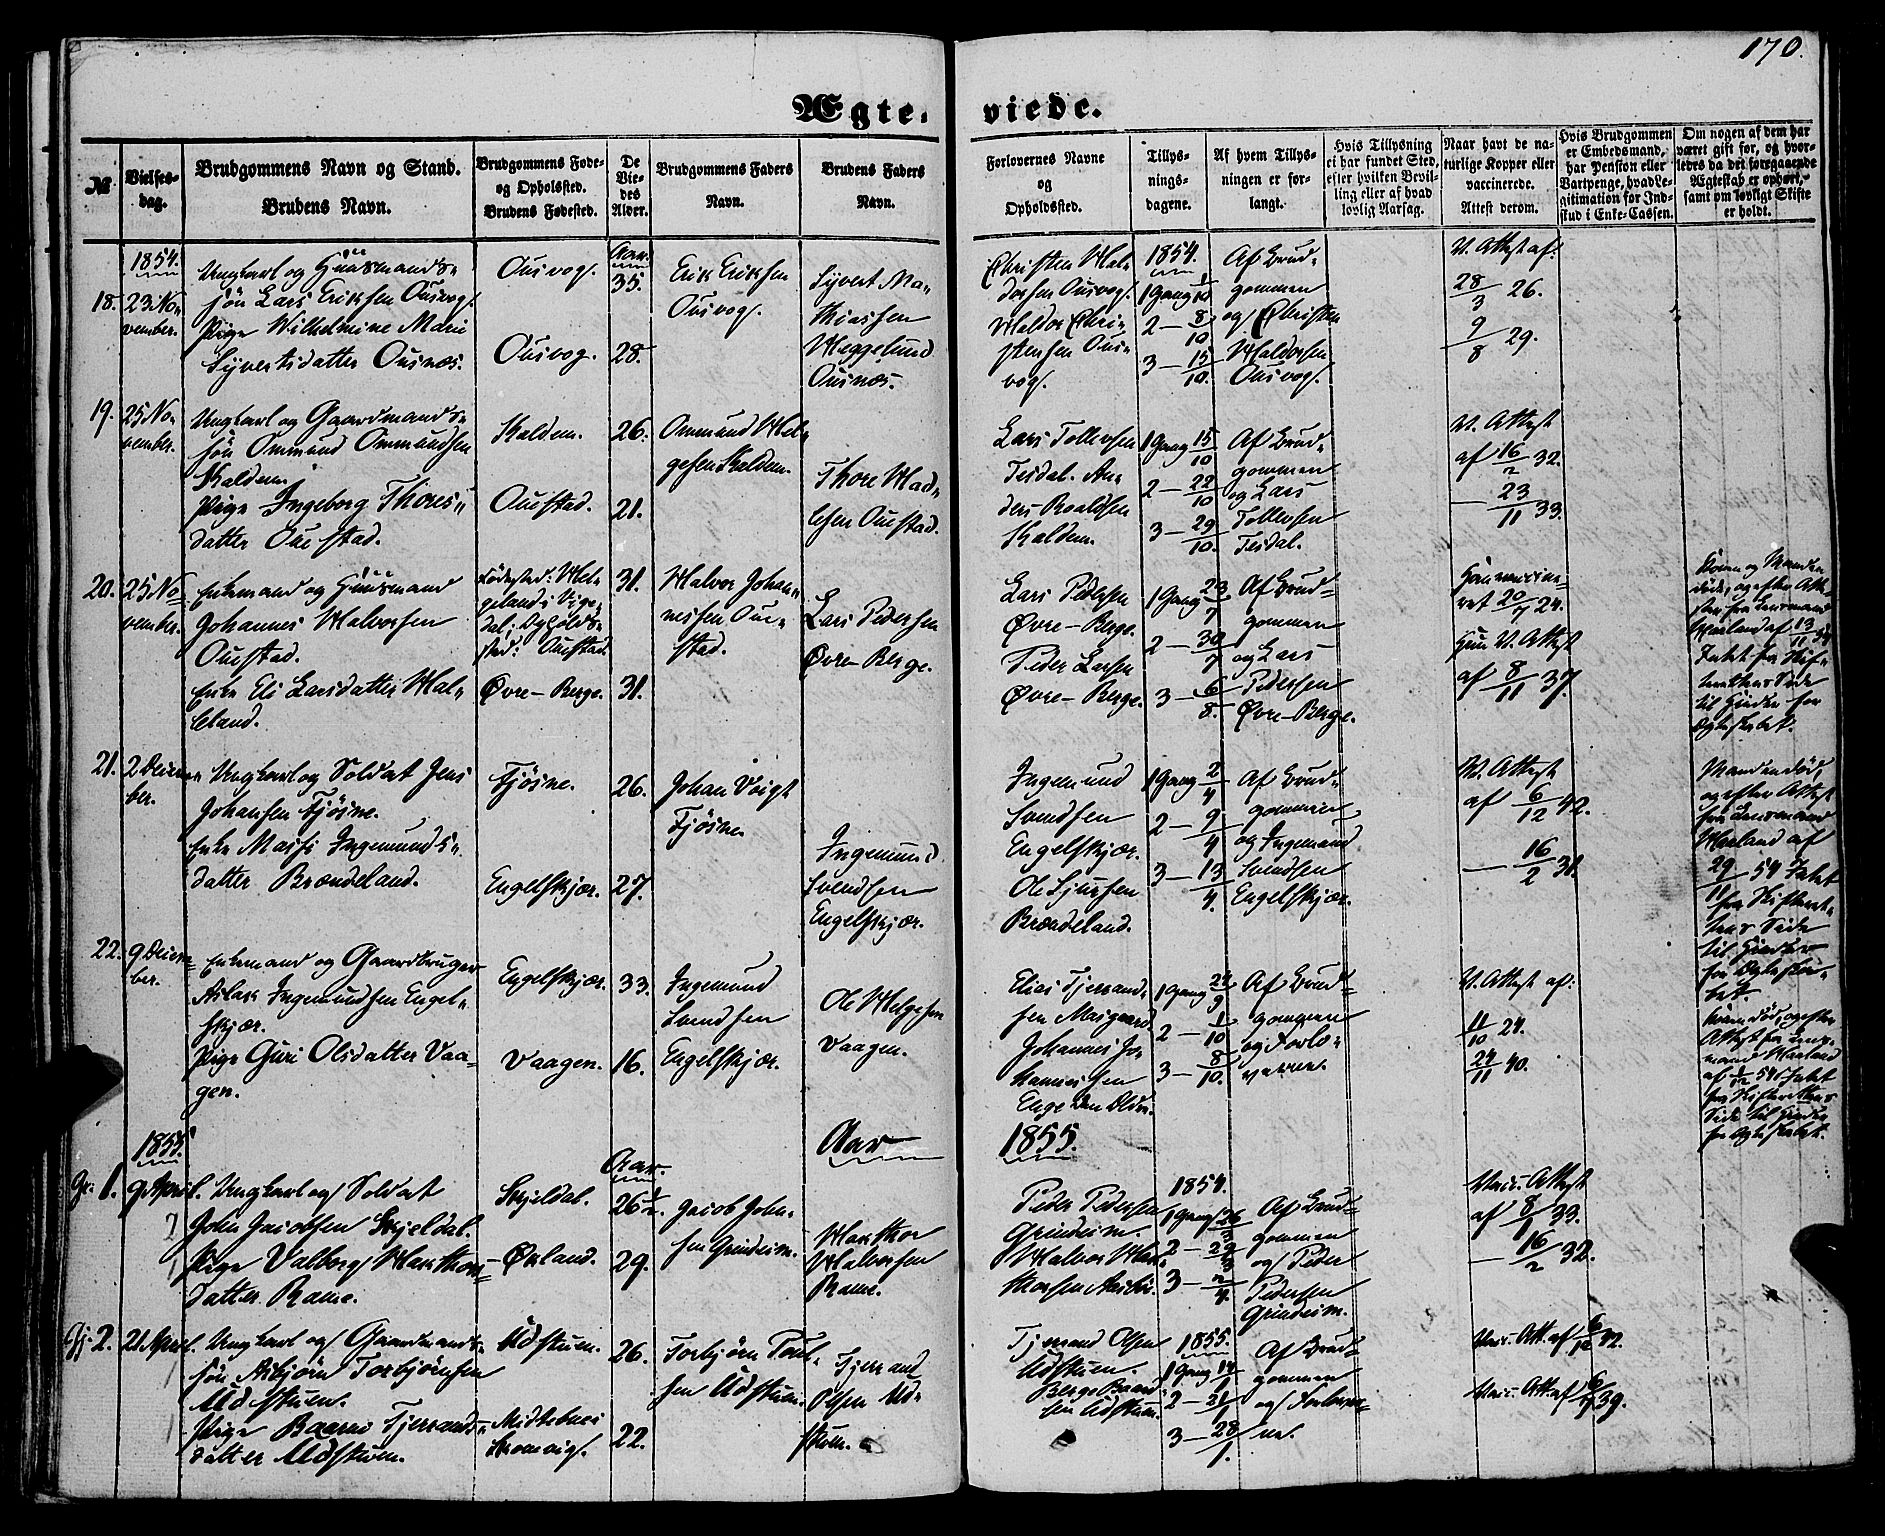 170.
Ægte-
viede.
№
Vielses-
dag.
Brudgommens Navn og Stand.
Brudens Navn.
Brudgommens Føde-
og Opholdssted.
Brudens Fødested.
De
Vie-
des
Alder.
Brudgommens Faders
Navn.
Brudens Faders
Navn.
Forlovernes Navne
og
Opholdssted.
Tillys-
nings-
dagene.
Af hvem Tillys-
ningen er for-
langt.
Hvis Tillysning
ei har fundet Sted,
efter hvilken Bevil-
ling eller af hvad
lovlig Aarsag.
Naar havt de na-
turlige Kopper eller
vaccinerede.
Attest derom.
Hvis Brudgommen
er Embedsmand,
har Pension eller
Vartpenge, hvad Le-
gitimation for Ind-
skud i Enke-Cassen.
Om nogen af dem har
været gift før, og hvor-
ledes da det foregaaende
Ægteskab er ophørt,
samt om lovligt Skifte
er holdt.
1854.
18.
23 No-
vember.
Ungkarl og Huusmands-
søn Lars Eriksen Ousvog.
Pige Wilhelmine Marie
Syvertsdatter Ousnæs.
Ousvog.
Ousvog.
Aar.
35.
28.
Erik Eriksen
Ousvog.
Syvert Ma-
thiassen
Ousnæs.
Christen Hal-
dorsen Ousvog.
Haldor Chri-
stensen Ous-
vog.
1854.
1 Gang 1/10
2 — 8/10
3 — 15/10.
Af Brud-
gommen
og Christen
Haldorsen
Ousvog.
V. Attest af:
28/3 26.
9/8 29.
19.
25 No-
vember.
Ungkarl og Gaardmands-
søn Ommund Ommundsen
Kaldem.
Pige Ingeborg Thores-
datter Ouestad.
Kaldem.
Ouestad.
26.
21.
Ommund Hel-
gesen Kaldem.
Thore Had-
lesen Ouestad.
Lars Tollevsen
Tesdal. An-
ders Roaldsen
Kaldem.
1 Gang 15/10
2 — 22/10
3 — 29/10.
Af Brud-
gommen
og Lars
Tollevsen
Tesdal.
V. Attest
af 16/2 32.
— 23/11 33.
20.
25 No-
vember.
Enkemand og Huusmand
Johannes Halvorsen
Ouestad.
Enke Eli Larsdatter Hal-
leland.
Fødested: Hel-
geland i Vige-
dal; Opholds-
sted: Ouestad.
Øvre-Berge.
31.
31.
Halvor Johan-
nessen Oue-
stad.
Lars Pedersen
Øvre-Berge.
Lars Pedersen
Øvre-Berge.
Peder Larsen
Øvre-Berge.
1 Gang 23/7
2 — 30/7
3 — 6/8.
Af Brud-
gommen
og Lars
Pedersen
Øvre-Berge.
Han vaccine-
ret 20/7 24.
Hun V. Attest
af 8/11 37.
Konen og Manden
døde, og efter Atte-
ster fra Lensmand
Haaland af 13/11 54
Intet fra Skif-
terettens Side
til Hinder for
Ægteskabet.
21.
2 Decem-
ber.
Ungkarl og Soldat Jens
Johansen Fjøsne.
Enke Massi Ingemunds-
datter Brændeland.
Fjøsne.
Engelskjær.
26.
27.
Johan Voigt
Fjøsne.
Ingemund
Svendsen
Engelskjær.
Ingemund
Svendsen
Engelskjær.
Ole Sjursen
Brændeland.
1 Gang 2/4
2 — 9/4
3 — 13/4.
Af Brud-
gommen
og Ingemund
Svendsen
Engelskjær.
V. Attest
af 6/12 42.
— 16/2 31.
Manden død,
og efter Attest
fra Lensmand
Haaland af
29/11 54 Intet
fra Skifteret-
tens Side
til Hinder
for Ægteska-
bet.
22.
9 Decem-
ber.
Enkemand og Gaardbruger
Aslak Ingemundsen Engel-
skjær.
Pige Guri Olsdatter Vaa-
gen.
Engelskjær.
Vaagen.
33.
16.
Ingemund
Svendsen
Engelskjær.
Ole Helgesen
Vaagen.
Elias Tjerrand-
sen Maigaard.
Johannes Jo-
hannessen
1 Gang 24/9
2 — 1/10
3 — 8/10.
Af Brud-
gommen
og Forlo-
verne.
V. Attest af:
11/10 24.
24/11 40.
Konen død, og efter
Attest fra Lens-
mand Haaland
af 8/12 54 Intet
fra Skifterettens
Side til Hinder
for Ægteskabet.
1855.
Aar
1855.
Gr. 1.
9. April.
Ungkarl og Soldat
John Jacobsen Skjeldal.
Pige Valborg Hakthors-
datter Rame.
Skjeldal.
Ørland.
Aar.
26 1/2.
29.
Jacob John-
sen Grindeim.
Hakthor
Halvorsen
Rame.
Peder Pedersen
Grindeim.
Halvor Hak-
thorsen
1854.
1 Gang 26/3
2 —
3 — 2/4.
Af Brud-
gommen
og Peder
Pedersen
Grindeim.
Vacc. Attest
af 8/1 33.
— 16/2 32.
Gj. 2.
21 April.
Ungkarl og Gaardmands-
søn Asbjørn Torbjørnsen
Udstuen.
Pige Baarni Tjerrands-
datter Udstuen.
Udstuen.
26.
22.
Torbjørn Poul-
sen Udstuen.
Tjerrand
Olsen Ud-
stuen.
Tjerrand Olsen
Udstuen.
Berge Baard-
sen Udstuen.
1855.
1 Gang 14/1
2 — 21/1
3 — 28/1.
Af Brud-
gommen
og Forlover-
ne.
Vacc. Att. af 6/12 32.
Vacc. Att. af 39.